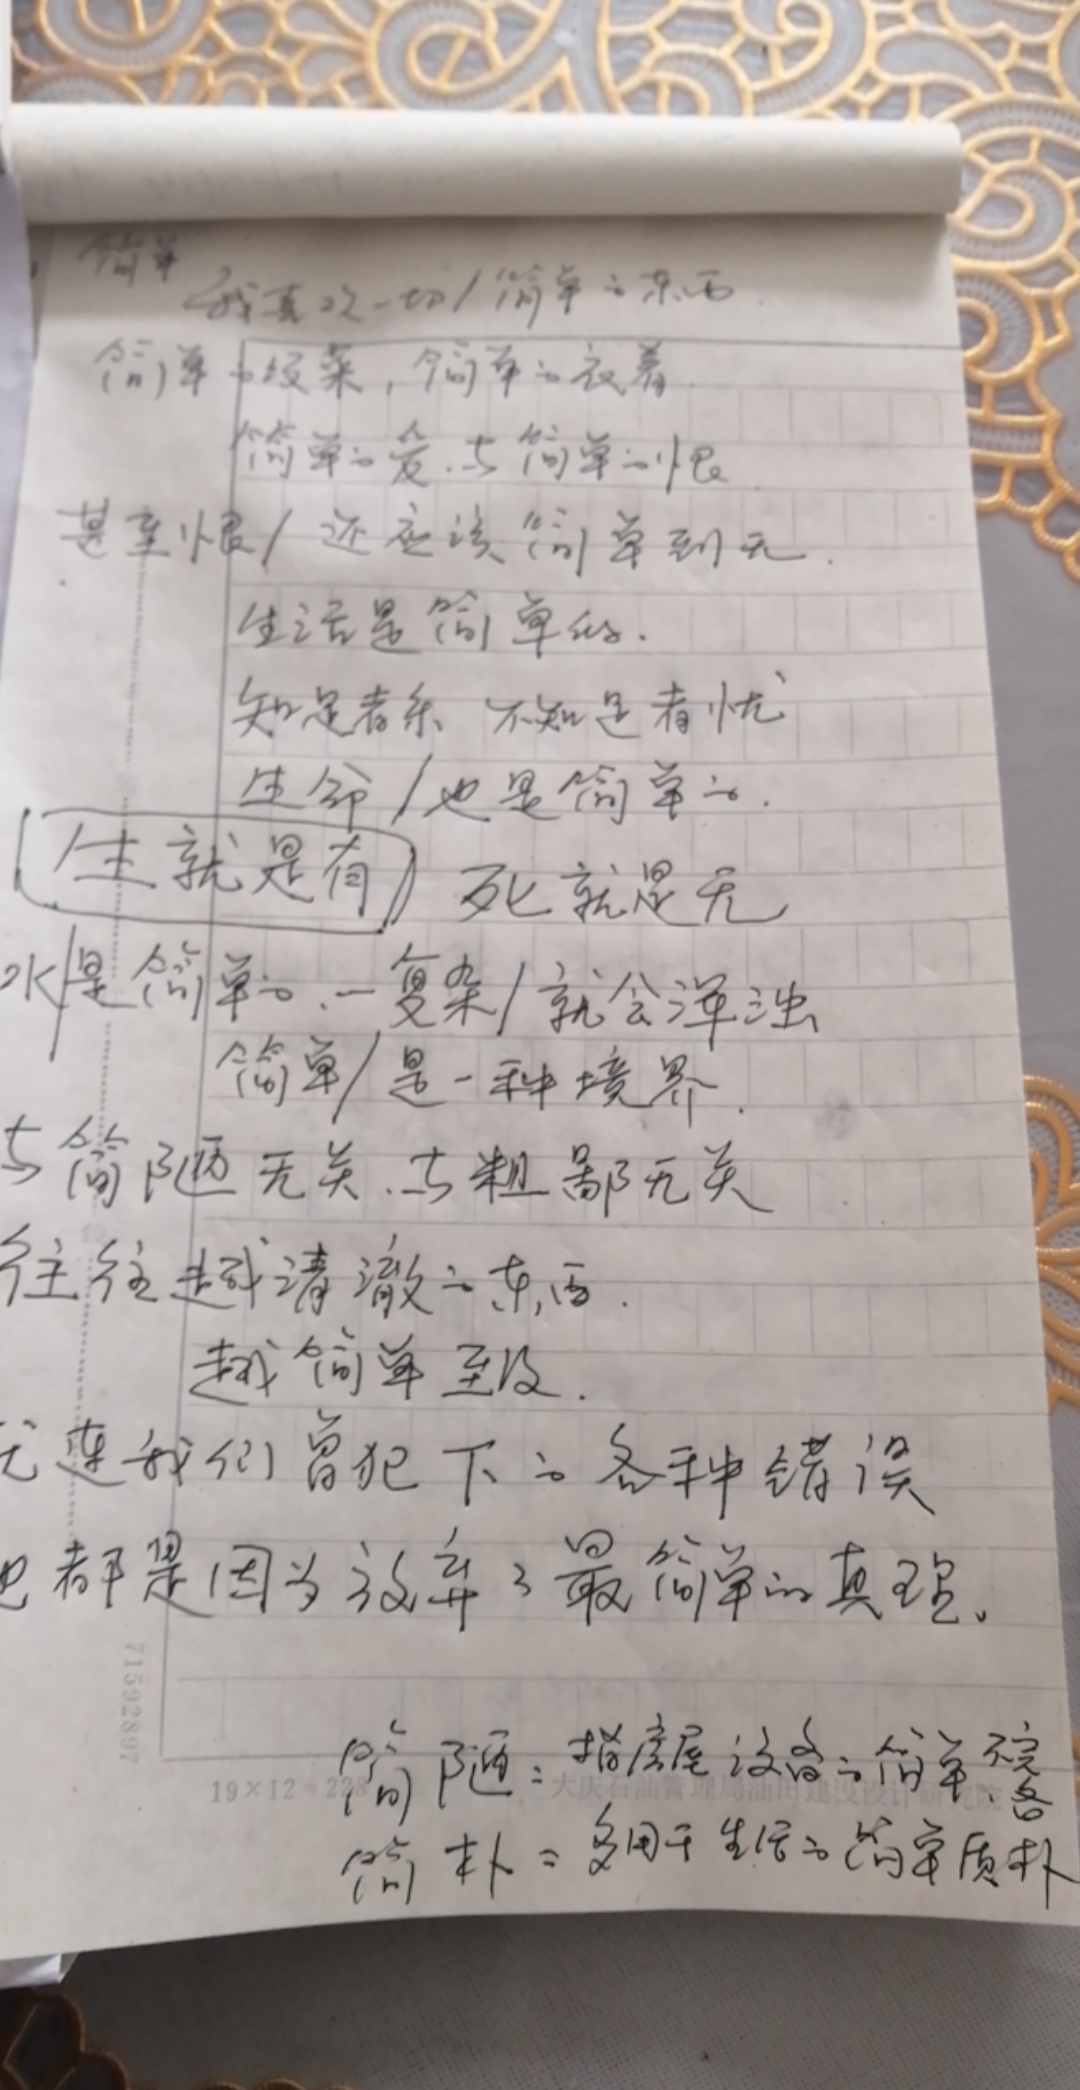 简单
我喜欢一切/简单的东西.
简单的饭菜,简单的衣着
简单的爱.与简单的恨.
甚至恨/还应该简单到无.
生活是简单的.
知足者乐 不知足者忧
生命/也是简单的.
(生就是有) 死就是无
水/是简单的.一复杂/就会浑浊
简单/是一种境界.
与简陋无关.与粗鄙无关
往往越清澈的东西.
越简单至极.
连我们曾犯下的各种错误
也都是因为放弃了最简单的真理。
71592897
19×12=228 大庆石油管理局油田建设设计研究院
简陋:指房屋设备的简单不完备
简朴:多用于生活的简单质朴